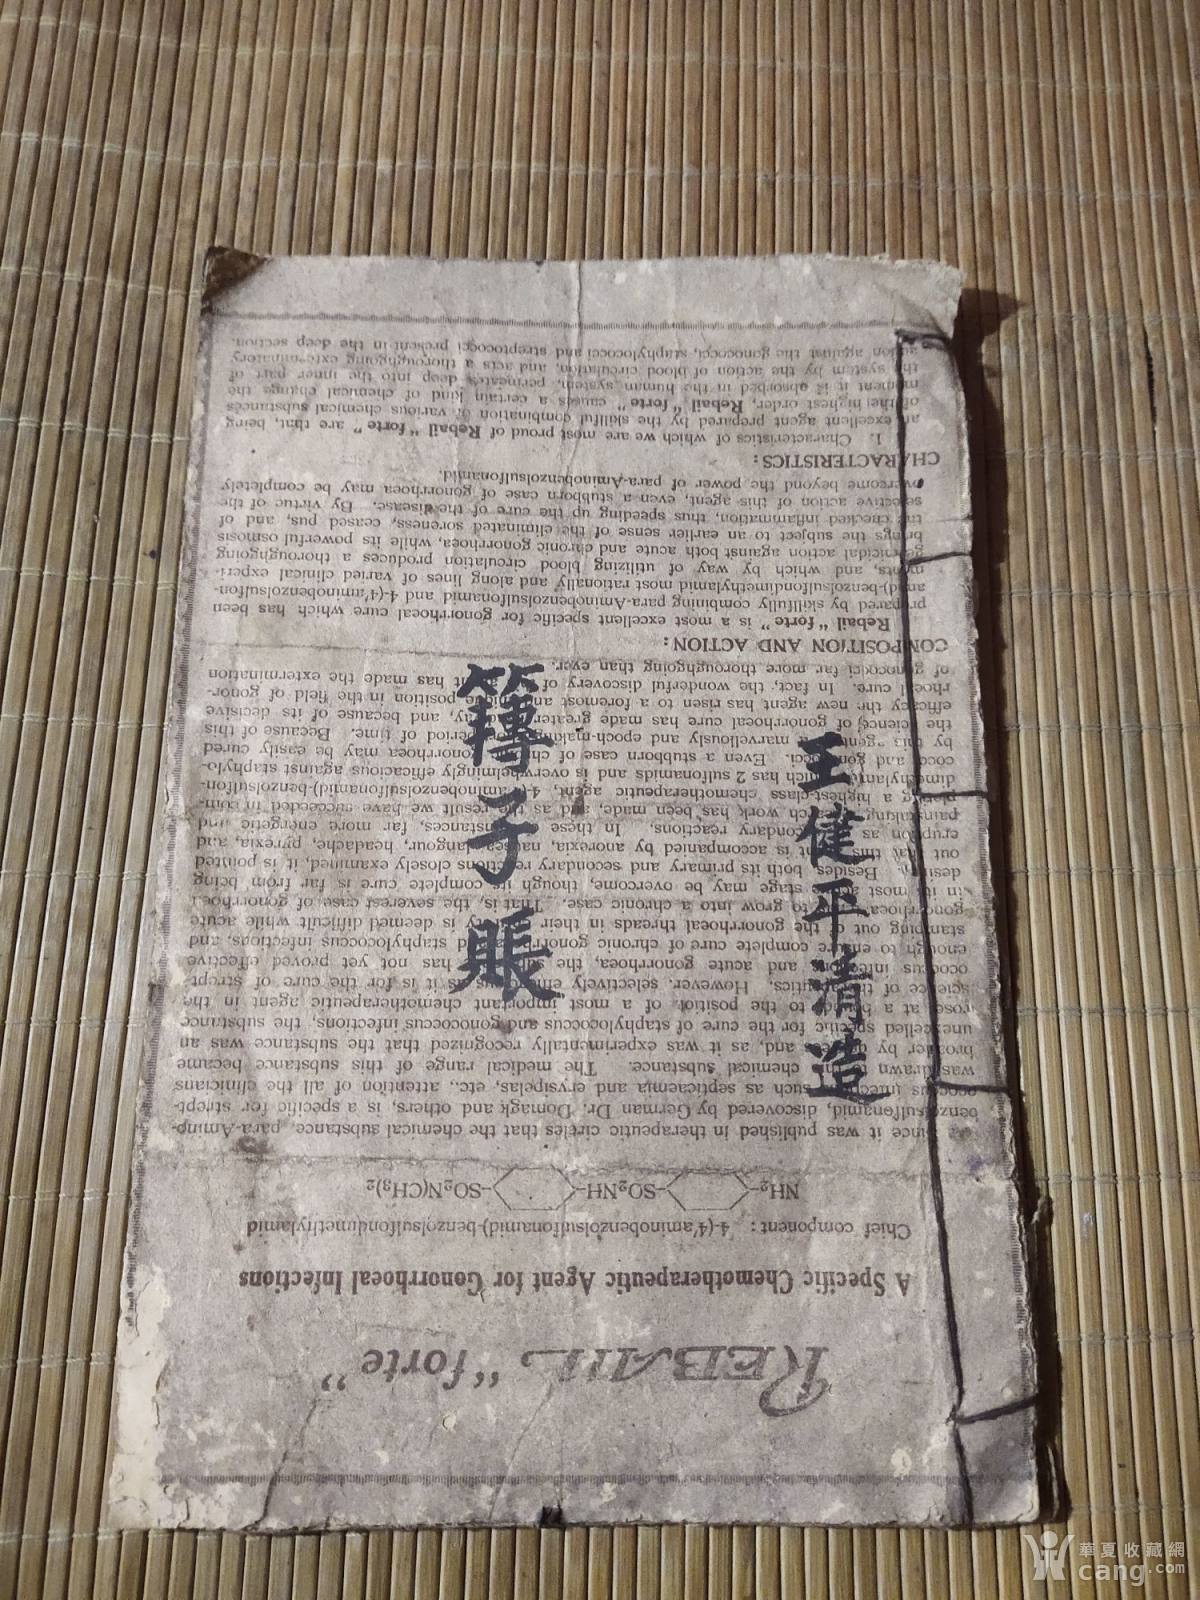 王健平清造
簿子賬
REBAIL "forte"
A Specific Chemotherapeutic Agent for Gonorrhoeal Infections
Chief component: 4-(4'aminobenzolsulfonamid)-benzolsulfondimethylamid
NH₂- -SO₂NH- -SO₂N(CH₃)₂
Since it was published in therapeutic circles that the chemical substance, para-Amino-
benzolsulfonamid, discovered by German Dr. Domagk and others, is a specific for strept-
ococcus infections such as septicaemia and erysipelas, etc., attention of all the clinicians
was drawn to the chemical substance. The medical range of this substance became
broader by degrees and, as it was experimentally recognized that the substance was an
unexcelled specific for the cure of staphylococcus and gonococcus infections, the substance
rose at a bound to the position of a most important chemotherapeutic agent in the
science of therapeutics. However, selectively efficacious as it is for the cure of strept-
ococcus infections and acute gonorrhoea, the has not yet proved effective
enough to ensure complete cure of chronic gonorrhoea and staphylococcus infections, and
stamping out of the gonorrhoeal threads in their is deemed difficult while acute
gonorrhoea to grow into a chronic case. That is, the severest case of gonorrhoea
in its most acute stage may be overcome, though its complete cure is far from being
desired. Besides, both its primary and secondary reactions closely examined, it is pointed
out that this is accompanied by anorexia, nausea, languour, headache, pyrexia, and
eruption as secondary reactions. In these circumstances, far more energetic and
painstaking research work has been made, and as the result we have succeeded in com-
pleting a highest-class chemotherapeutic agent, 4-(4'aminobenzolsulfonamid)-benzolsulfon-
dimethylamid which has 2 sulfonamids and is overwhelmingly efficacious against staphylo-
cocci and gonococci. Even a stubborn case of chronic gonorrhoea may be easily cured
by this agent in a marvellously and epoch-making period of time. Because of this
the science of gonorrhoeal cure has made greater and because of its decisive
efficacy the new agent has risen to a foremost and unique position in the field of gonor-
rhoeal cure. In fact, the wonderful discovery of has made the extermination
of gonococci far more thoroughgoing than ever.
COMPOSITION AND ACTION:
Rebail "forte" is a most excellent specific for gonorrhoeal cure which has been
prepared by skillfully combining para-Aminobenzolsulfonamid and 4-(4'aminobenzolsulfon-
amid)-benzolsulfondimethylamid most rationally and along lines of varied clinical experi-
ments, and which by way of utilizing blood circulation produces a thoroughgoing
germicidal action against both acute and chronic gonorrhoea, while its powerful osmosis
brings the subject to an earlier sense of the eliminated soreness, ceased pus, and of
the checked inflammation, thus speeding up the cure of the disease. By virtue of the
selective action of this agent, even a stubborn case of gonorrhoea may be completely
overcome beyond the power of para-Aminobenzolsulfonamid.
CHARACTERISTICS:
1. Characteristics of which we are most proud of Rebail "forte" are that, being
an excellent agent prepared by the skillful combination of various chemical substances
of the highest order, Rebail "forte" causes a certain kind of chemical change the
moment it is absorbed in the human system, permeates deep into the inner part of
the system by the action of blood circulation, and acts a thoroughgoing exterminatory
action against the gonococci, staphylococci and streptococci present in the deep section.
華夏收藏網
cang.com